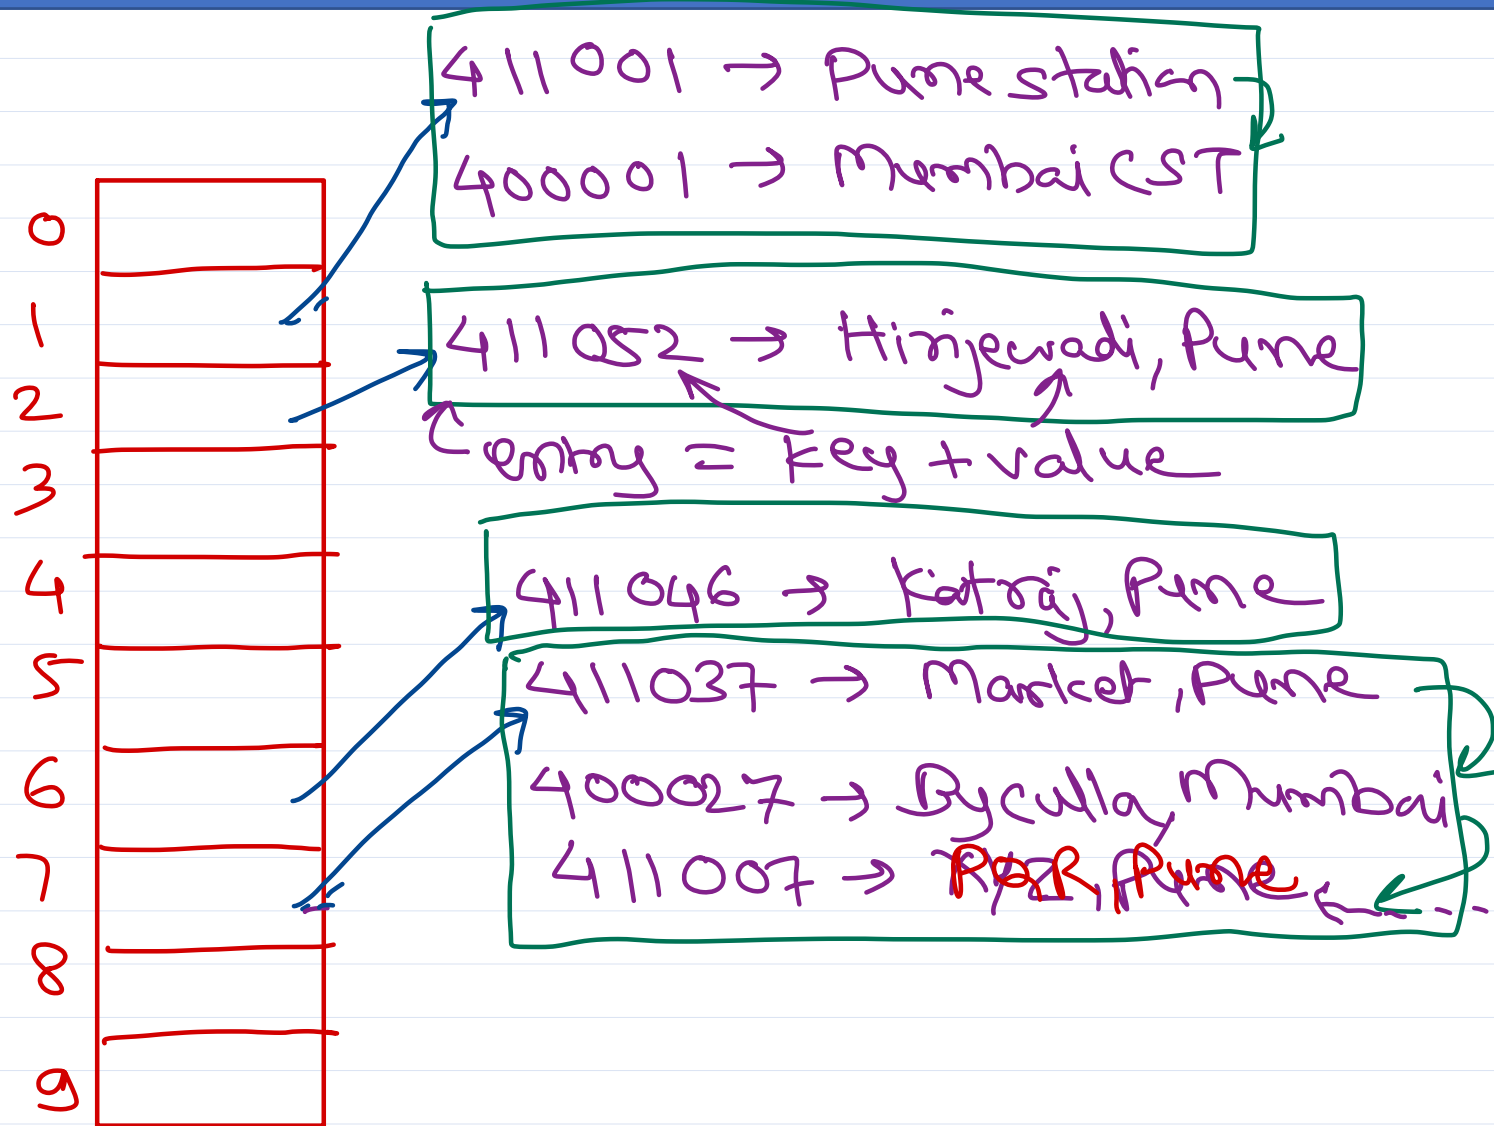 411001 → Pune station
400001 → Mumbai CST
0
1
411052 → Hinjewadi, Pune
2
entry = key + value
3
4
411046 → Katraj, Pune
5
411037 → Market, Pune
6
400027 → Byculla, Mumbai
7
411007 → Pune
8
9